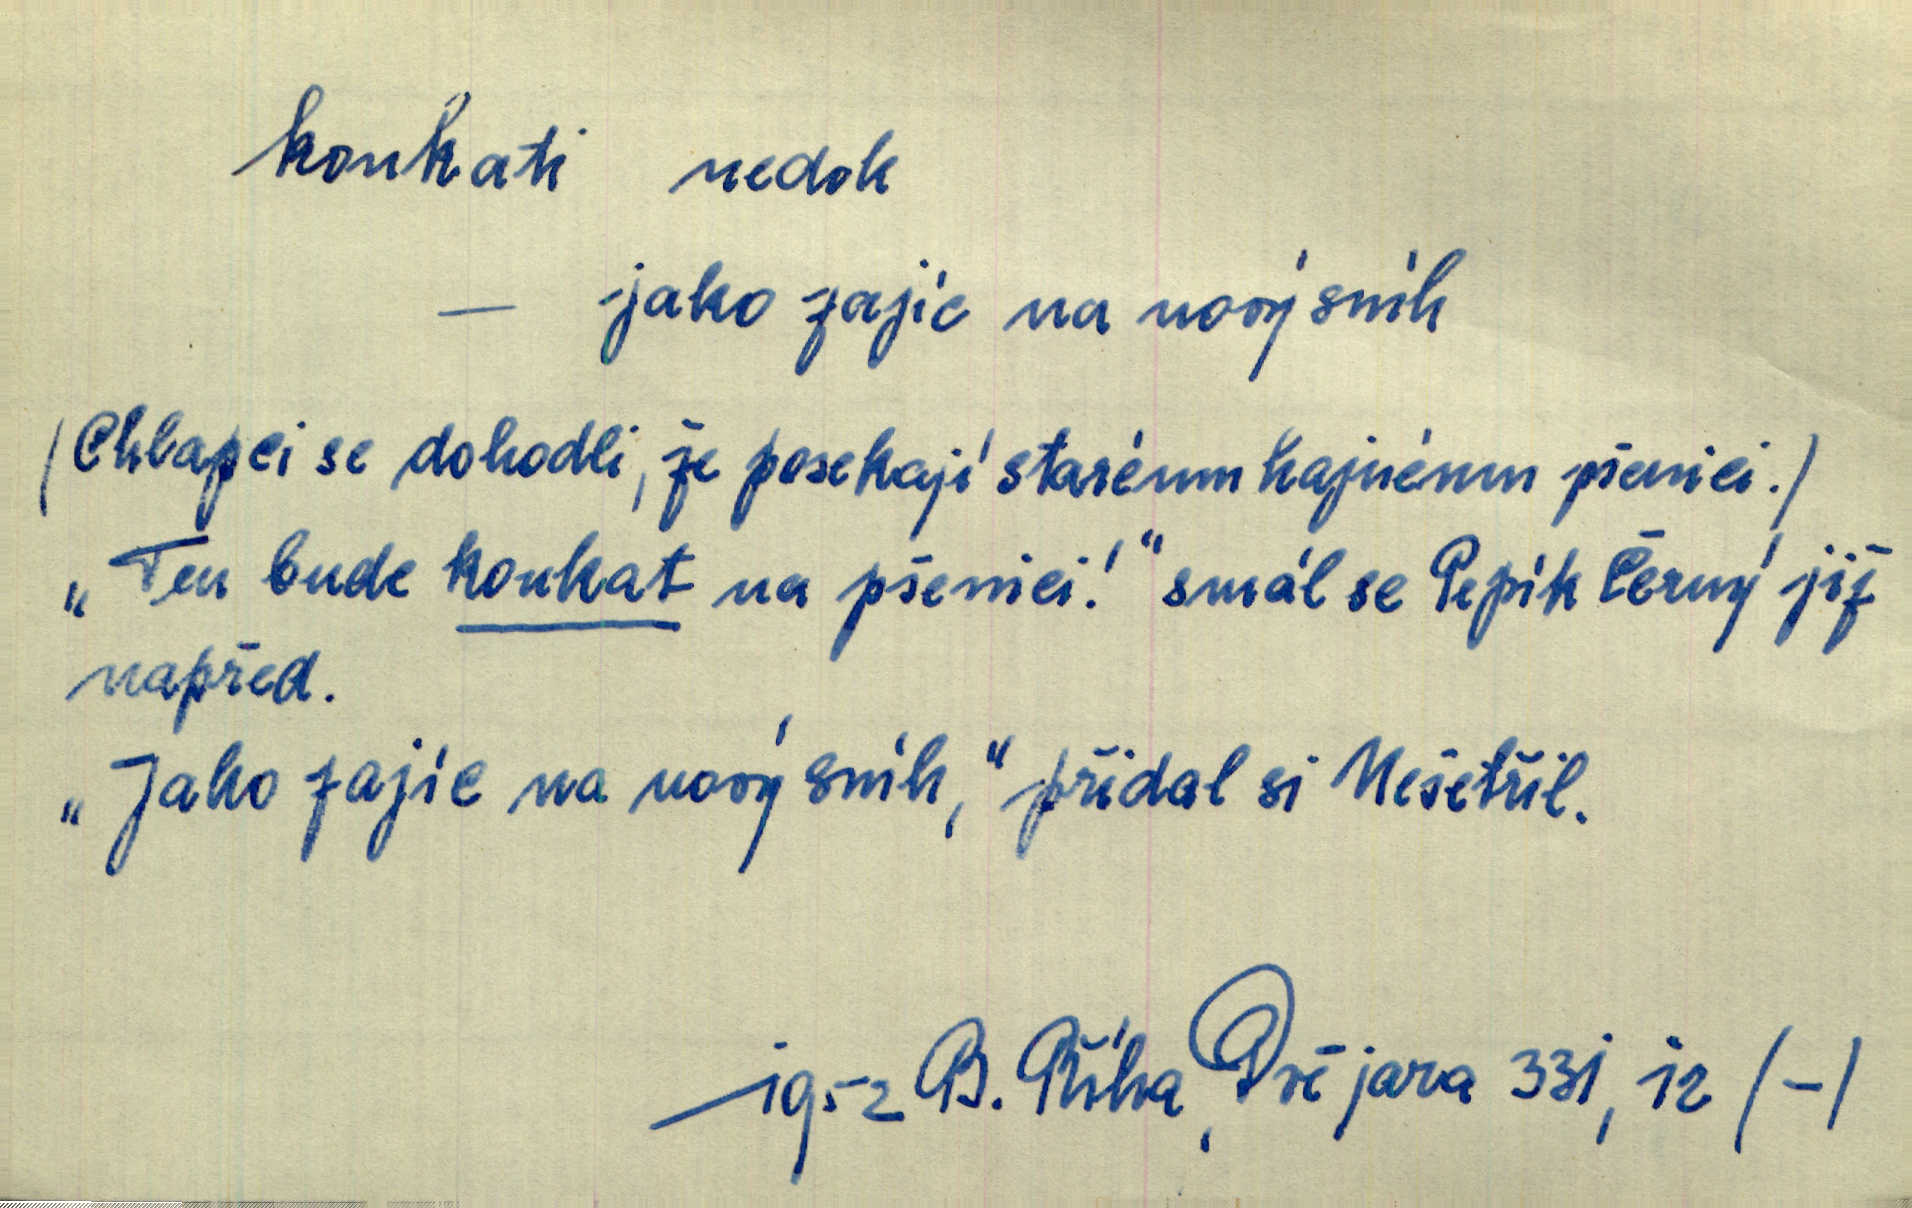 koukati nedok
— jako zajíc na nový sníh
(Chlapci se dohodli, že posekají starému hajnému pšenici.)
„Ten bude koukat na pšenici!“ smál se Pepík Černý již
napřed.
„Jako zajíc na nový sníh,“ přidal si Nešetřil.
1952 B. Říha, Dvě jara 331, 12 (–)